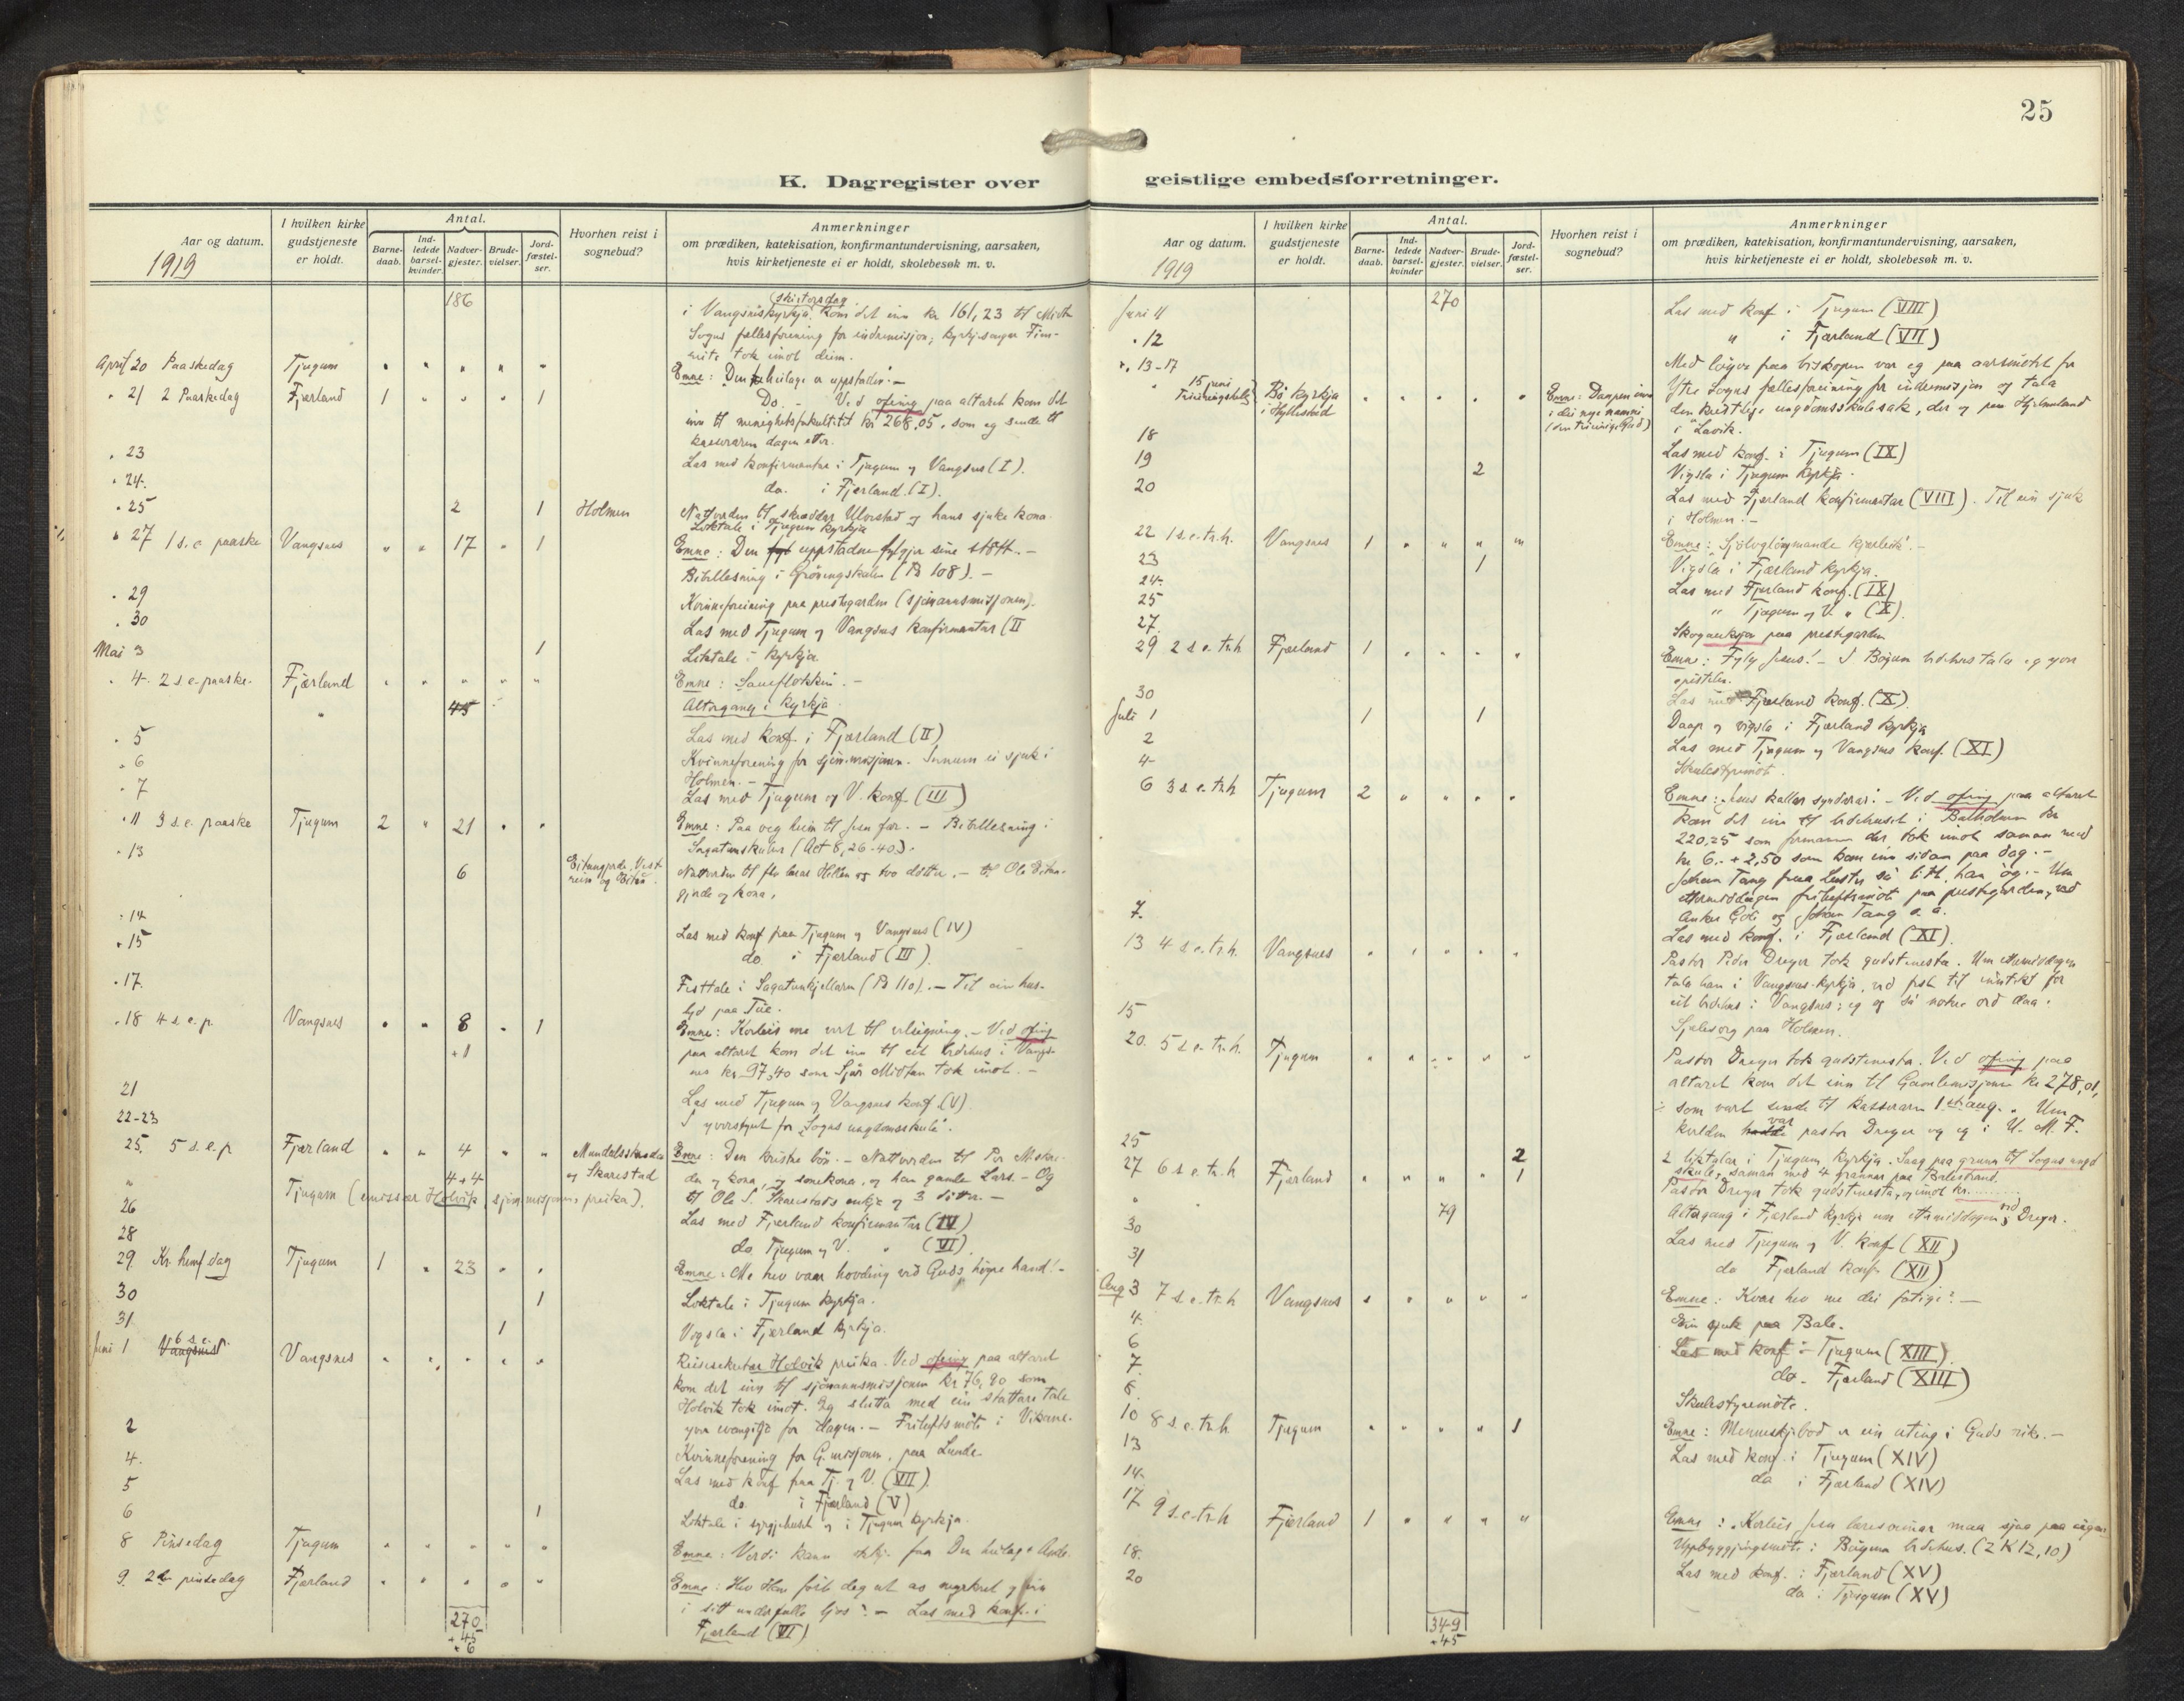 25
K. Dagregister over
Aar og datum.
1919
I hvilken kirke gudstjeneste er holdt.
Antal.
Barne-daab.
Ind-ledede barsel-kvinder.
Nadver-gjester.
Brude-vielser.
Jord-fæstel-ser.
Hvorhen reist i sognebud?
Anmerkninger
om prædiken, katekisation, konfirmantundervisning, aarsaken,
hvis kirketjeneste ei er holdt, skolebesøk m. v.
186
skirtorsdag
i Vangsnes kyrkja. Kom det inn kr 161,23 til Midt-
Sogns fellesforening for indremisjon; kyrkjesongar Fim-
reite tok imot deim.
April 20 Paaskedag Tjugum
Emne: Den heilage er uppstaden! –
" 21 2 Paaskedag Fjærland 1 1
Do. – Ved ofring paa altaret kom det
inn til menighetsfakultetet kr 268,05, som eg sende til
kasseraren dagen etter.
" 23
Las med konfirmantar i Tjugum og Vangsnes (I).
" 24.
do. i Fjærland (I).
" 25 2 1 Holmen
Nattverden til skreddar Ulvestad og hans sjuke kona.
Liktale i Tjugum kyrkja
" 27 1 s. e. paaske Vangsnes 17 1
Emne: Den uppstadne fylgjer sine støtt. –
Bibellesning i Grøningskulen (B 108). –
" 29
Kvinneforeining paa prestegarden (sjømannsmisjonen).
" 30
Las med Tjugum og Vangsnes konfirmantar (II
Mai 3 1
Liktale i kyrkja
" 4. 2 s e. paaske. Fjærland
Emne: Saueflokken. –
" 45
Altargang i kyrkja.
" 5
Las med konf. i Fjærland (II)
" 6
Kvinneforening for sjøm.misjonen. Innum ei sjuk i
Holmen. –
" 7
Las med Tjugum og V. konf. (III)
" 11 3 s. e. paaske Tjugum 2 21
Emne: Paa veg heim til sin far. – Bibellesning i
Sagatunskulen (Act 8, 26-40).
" 13 6
" 14
Las med konf paa Tjugum og Vangsnes (IV)
" 15
do i Fjærland (III).
" 17.
Festtale i Sagatunkjellaren (B 110). – Til ein hus-
lyd paa Tue.
" 18 4 s. e. p. Vangsnes 8 1
+1
Ved ofring
paa altaret kom det inn til eit bedehus i Vangs-
nes kr 97,40 som Sjur Midtun tok imot. –
21
Las med Tjugum og Vangsnes konf. (V)
22-23
I yverstyret for "Sogns ungdomsskule".
25. 5 s. e. p Fjærland 4
4+4
og Skarestad
Emne: Den kristne bøn. – Nattverden til Per
og kona, og sonekona, og han gamle Lars. – Og
til Ole S. Skarestads enkje og 3
" Tjugum (emissær Holvik, sjøm.misjonen, preika).
26
Las med Fjærland konfirmantar (IV)
28
do. Tjugum og V. " (VI)
29. Kr. himf.dag Tjugum 1 23
Emne: Me hev vaar hovding ved Guds høgre hand! –
30 1
Liktale i Tjugum kyrkja.
31 1
Vigsla i Fjærland kyrkja.
Juni 1 6 s. e. p. Vangsnes
Reisesekretær Holvik preika. Ved ofring paa altaret
kom det inn til sjømannsmisjonen kr 76,90 som
Holvik tok imot. Eg slutta med ein stuttare tale
yver evangeliet for dagen. – Friluftsmøte i
2
Kvinneforening for G. misjonen, paa Lunde
4.
Las med konf. fraa Tj. og V. (VII)
5
do. i Fjærland (V)
6 1
Liktale i syrgjehuset og i Tjugum kyrkja.
8 Pinsedag Tjugum
Emne: Verdi kann skje fraa Den heilage Ande.
9. 2de pinsedag Fjærland
Emne: Hev Han ført deg ut av myrkret og inn
i sitt underfulle ljos? – Las med konf. i
Fjærland (VI)
270
+ 45
+ 6
geistlige embedsforretninger.
Aar og datum.
1919
I hvilken kirke gudstjeneste er holdt.
Antal.
Barne-daab.
Ind-ledede barsel-kvinder
Nadver-gjester.
Brude-vielser.
Jord-fæstel-ser.
Hvorhen reist i sognebud?
Anmerkninger
om prædiken, katekisation, konfirmantundervisning, aarsaken,
hvis kirketjeneste ei er holdt, skolebesøk m. v.
270
Juni 11
Las med konf i Tjugum (VIII)
" 12
" i Fjærland (VII)
" 13-17
Med løyve fraa biskopen var eg paa aarsmøtet for
15 juni Bø kyrkja i Hyllestad
Emne: Daapen inn i dei nye namni (den treeinige Gud)
Ytre Sogns fellesforeining for indremisjon og tala
den kristelege ungdomsskulesak, der og paa Hjelmeland
i Lavik.
18
Las med konf. i Tjugum (IX)
19 2
Vigsla i Tjugum kyrkja.
20
Las med Fjærland konfirmantar (VIII). Til ein sjuk
i Holmen. –
22 1 s. e. tr. h. Vangsnes 1
Emne: Sjølvgløymande kjærleik! –
23 1
Vigsla i Fjærland kyrkja.
24.
Las med Fjærland konf. (IX)
25
" Tjugum og V. " (X).
27.
Skogauksjon paa prestegarden
29 2 s e. tr. h Fjærland 1
Emne: Fylg Jesus! – I Bøyum bedehus tala eg yver
epistelen.
30
Las med Fjærland konf. (X).
Juli 1 1 1
Daap og vigsla i Fjærland kyrkja
2
Las med Tjugum og Vangsnes konf. (XI)
4
Skulestyremøt.
6 3 s e. tr. h Tjugum 2
Emne: Jesus kallar syndarar! – Ved ofring paa altaret
kom det inn til bedehuset i Balholmen kr
220,25 som formannen der tok imot saman med
kr 6,- + 2,50 som kom inn sidan paa dag. –
Johan Tang fraa Luster sa litt, han òg. – Um
ettermiddagen friluftsmøte paa prestegarden, ved
Anker Godø og Johan Tang o. a.
7.
Las med konf. i Fjærland (XI).
13 4 s e. tr. h. Vangsnes
Pastor Peder Dreyer tok gudstenesta. Um ettermiddagen
tala han i Vangsnes-kyrkja, ved fest til inntekt for
eit bedehus i Vangsnes; eg og sa nokre ord daa.
15
Sjelesorg paa Holmen.
20. 5 s e. tr. h. Tjugum
Pastor Dreyer tok gudstenesta. Ved ofring paa
altaret kom det inn til Gamlemisjonen kr 278,01,
som vart sende til kasseraren 1ste aug. Um
kvelden var pastor Dreyer og eg i U. M. F.
25 2
2 liktalar i Tjugum kyrkja. Saag paa grunn til Sogns ungd.
skule, saman med 4 frammæ paa Balestrand.
27 6 s e. tr. h Fjærland 1
Pastor Dreyer tok gudstenesta, og imot kr. ........
" 79
Altargang i Fjærland kyrkja um ettermiddagen ved Dreyer.
30
Las med Tjugum og V. konf (XII)
31
do Fjærland konf. (XII)
Aug 3 7 s e. tr. h Vangsnes
Emne: Kvar hev me dei fatige? –
4.
Ein sjuk paa Bale.
6
Las med konf i Tjugum (XIII)
7.
do. Fjærland (XIII)
8.
Skulestyremøte.
10 8 s e. tr. h. Tjugum 1
Emne: Menneskjebod er ein uting i Guds rike. –
13
Las med konf. i Tjugum (XIV)
14.
do i Fjærland (XIV)
17. 9 s. e. tr. h Fjærland 1
Emne: Korleis Jesu læresveinar maa sjaa paa
Uppbyggjingsmøte i Bøyum bedehus. (2 K 12, 10)
18.
Las med konf. i Fjærland (XV)
20
do i Tjugum (XV)
349
+ 45